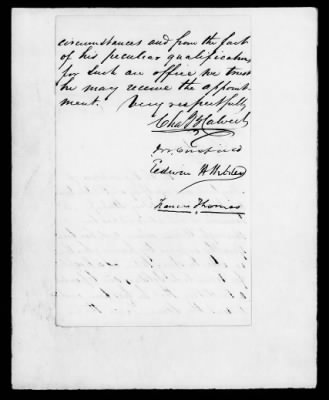 circumstances and from the fact
of his peculiar qualifications
for such an office we trust
he may receive the appoint-
ment. Very respectfully
Chas B Calvert
Edwin H Webster
Francis Thomas